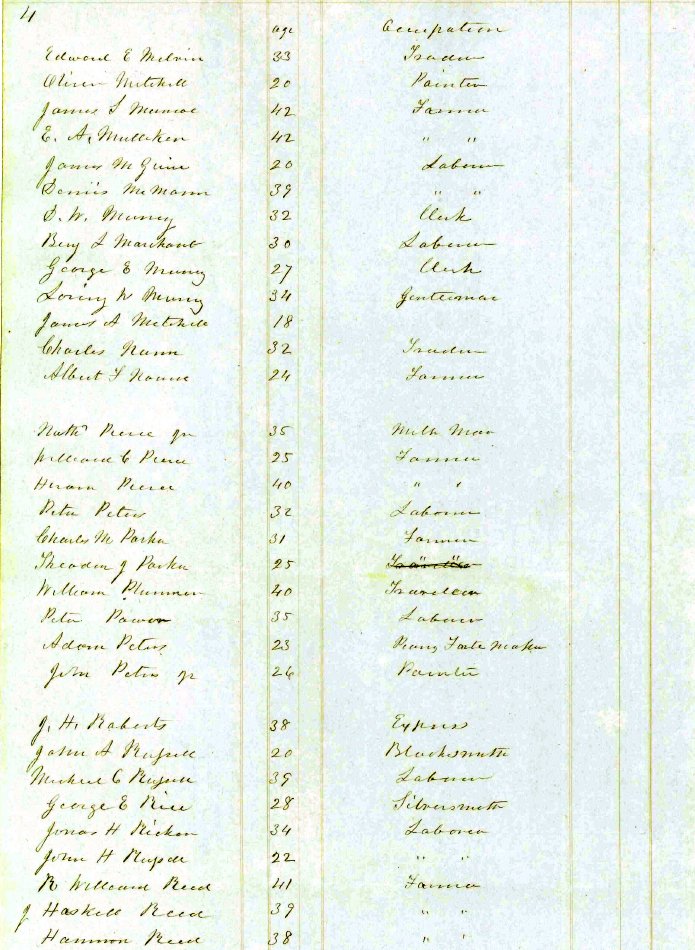 4
age Occupation
Edward E Melvin 33 Trader
Oliver Mitchell 20 Painter
James S Munroe 42 Farmer
E. A, Mulliken 42 " "
James McGuire 20 Laborer
Dennis McMann 39 " "
D. W. Muzzey 32 Clerk
Benj L Marchant 30 Laborer
George E Muzzey 27 Clerk
Loring W Muzzey 34 Gentleman
James A Mitchell 18
Charles Nunn 32 Trader
Albert F Nourse 24 Farmer
Nathl Pierce jr 35 Milk Man
Willard C Pierce 25 Farmer
Hiram Pierce 40 " "
Peter Peters 32 Laborer
Charles M Parker 31 Farmer
Theodore J Parker 25
William Plummer 40 Traveller
Peter Power 35 Laborer
Adam Peters 23 Piano Forte Maker
John Peters jr 26 Painter
J. H. Roberts 38 Express
John A Russell 20 Blacksmith
Michael C Russell 39 Laborer
George E Rice 28 Silversmith
Jonas H Ricker 34 Laborer
John H Russell 22 " "
R William Reed 41 Farmer
J Haskell Reed 39 " "
Hammon Reed 38 " "